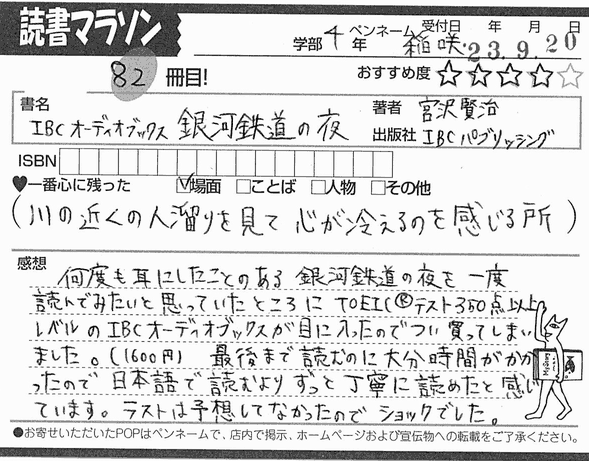 読書マラソン
学部 4年 ペンネーム 稲咲 受付日 年 月 日 23.9.20
82冊目!
おすすめ度 ★★★★☆
書名 IBCオーディオブックス 銀河鉄道の夜
著者 宮沢賢治
出版社 IBCパブリッシング
ISBN
♥一番心に残った ☑場面 □ことば □人物 □その他
(川の近くの人溜りを見て心が冷えるのを感じる所)
感想
何度も耳にしたことのある銀河鉄道の夜を一度
読んでみたいと思っていたところにTOEIC®テスト350点以上
レベルのIBCオーディオブックスが目に入ったのでつい買ってしまい
ました。(1600円) 最後まで読むのに大分時間がかか
ったので日本語で読むよりずっと丁寧に読めたと感じ
ています。ラストは予想してなかったのでショックでした。
●お寄せいただいたPOPはペンネームで、店内で掲示、ホームページおよび宣伝物への転載をご了承ください。